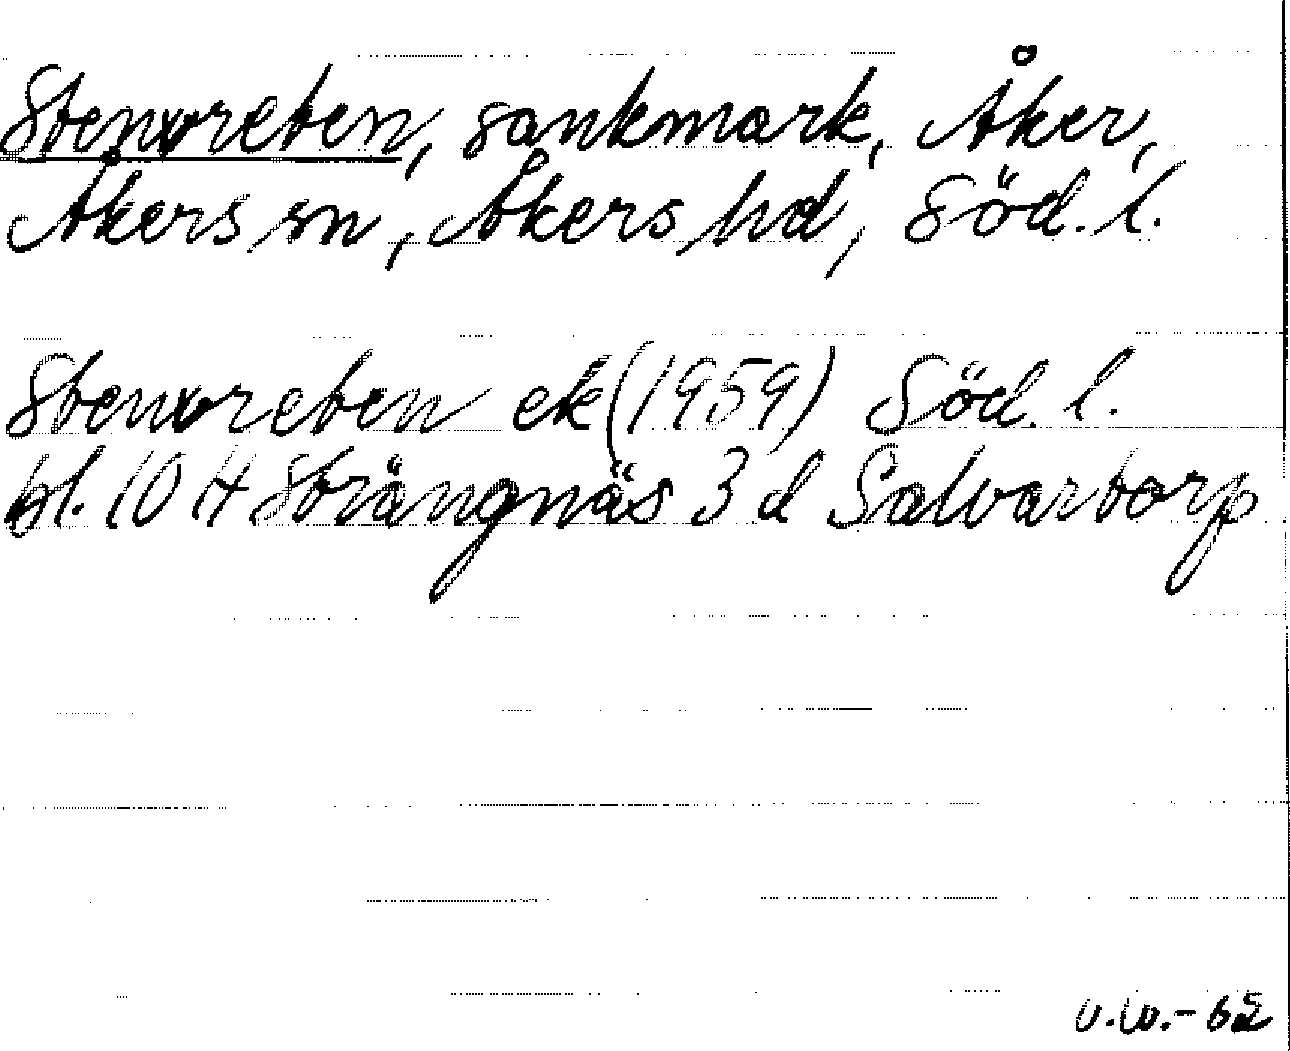 Stenvreten, sankmark, Åker,
Åkers sn, Åkers hd, Söd. l.
Stenvreten ek (1959) Söd. l.
bl. 10 H Strängnäs 3 d Salvartorp
U.W.-62